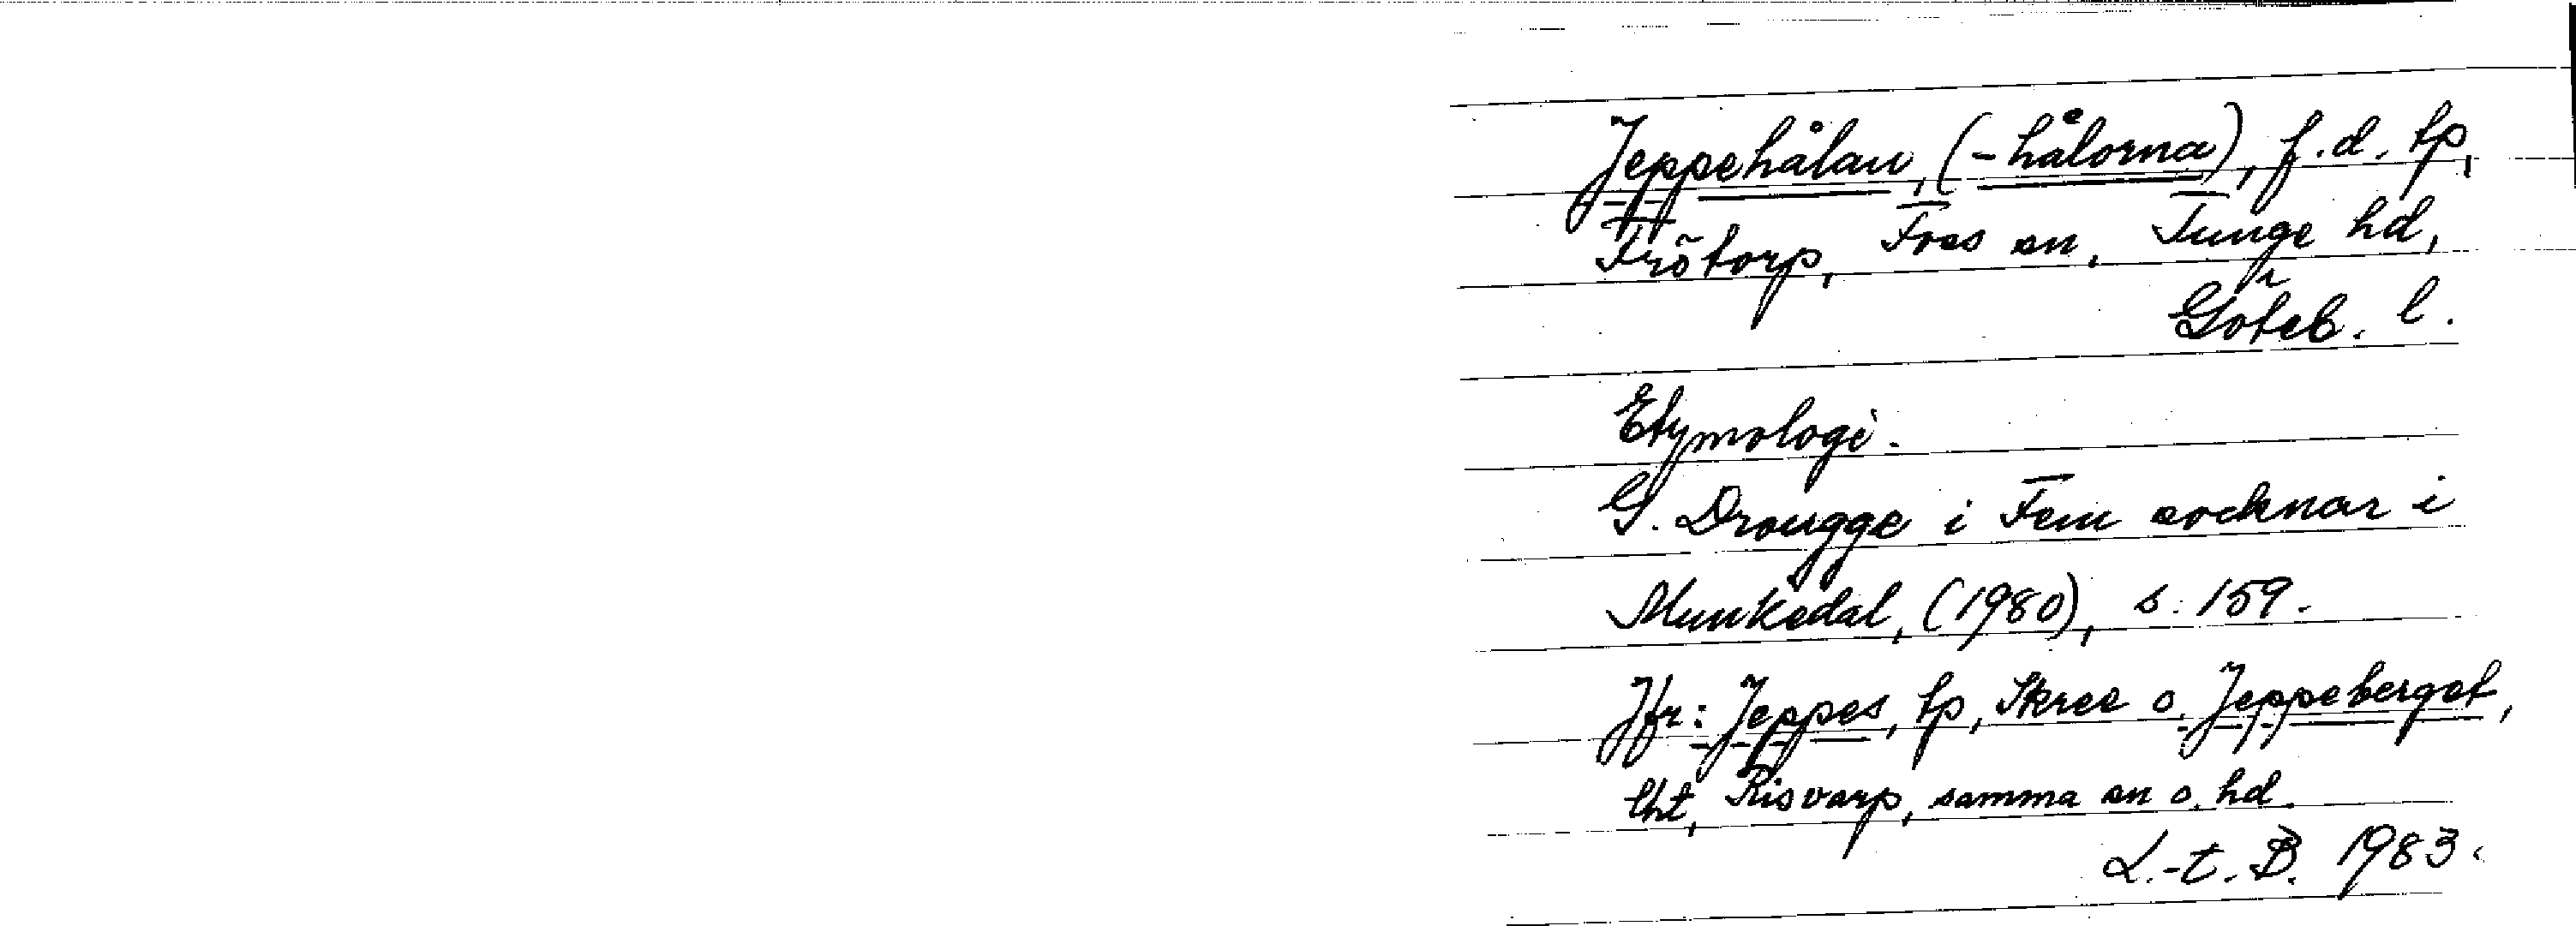 Jeppehålan, (-hålorna), f.d. tp,
Frötorp, Foss sn, Tunge hd,
Göteb. l.
Etymologi.
G. Drougge i Fem socknar i
Munkedal, (1980), s. 159.
Jfr: Jeppes, tp, Skree o. Jeppeberget,
lht, Risvarp, samma sn o. hd.
L.-t. B. 1983.